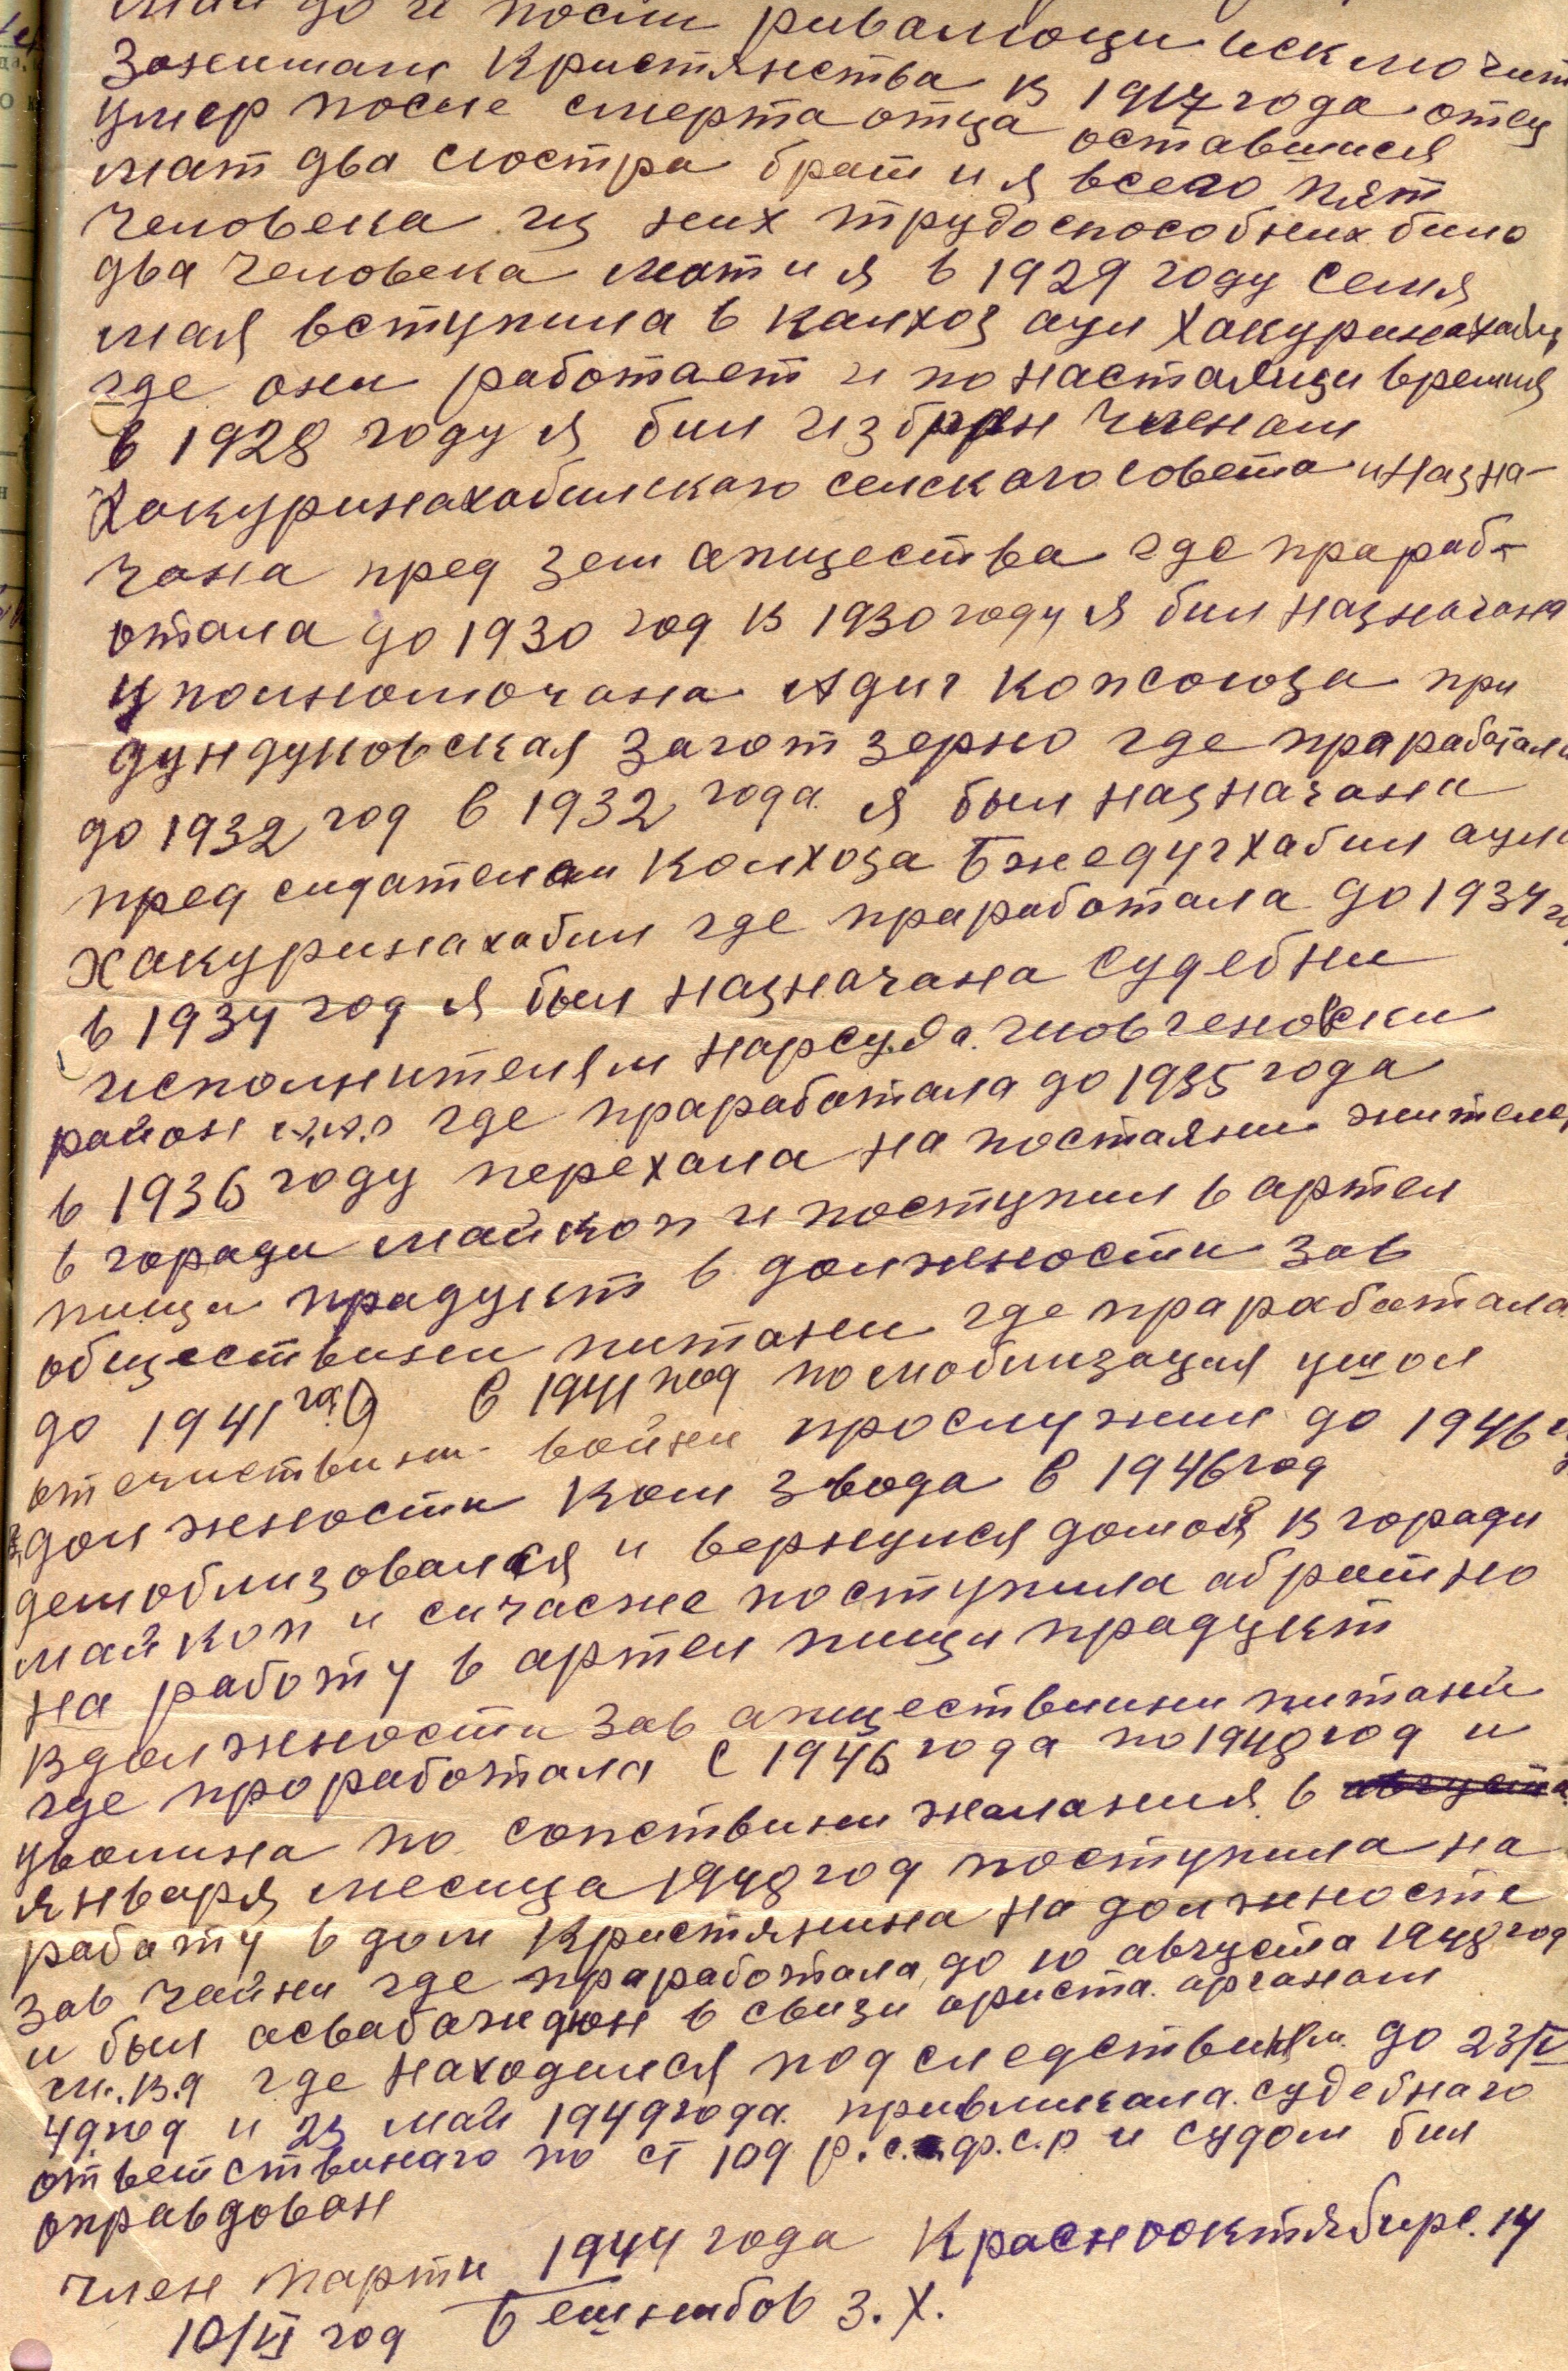 до и посли риваморци исключит
Занимали Кристянства в 1917 года отец
умер после смерта отца оставшися
мат два сюстра брат и я всего пят
человека из них трудоспособних било
два человека мати я в 1929 году семя
мая вступила в калхоз аул Хакуринахабл
где они работает и по настаящи времия
в 1928 году я бил избран членам
Хакуринахаблискаго селскаго совета и назна-
чана пред зем апщества где прараб-
отала до 1930 год в 1930 году я бил назначана
уполномочана Адиг копсоюза при
дундуковская загот зерно где праработала
до 1932 год в 1932 года я был назначани
пред сидателам Колхоза Бжедугхабл аула
Хакуринахабли где праработала до 1934 г
в 1934 год я был назначана судебни
исполнителям нарсуда. шовгеновски
район где прараработала до 1935 года
в 1936 году перехала на постаяни жител
в горади майкоп и поступил в артел
пищи прадукт в должности зав
обществини питани где праработала
до 1941 год в 1941 год по моблизация ушол
отечиствини войни прослужил до 1946
должности Ком звода в 1946 год
демоблизовался и вернулся домой в горади
майкоп и сичасже поступила абратно
на работу в артел пищи прадукт
в должности зав апществини питани
где проработала с 1946 года по 1948 год и
уволина по сопствини желания в августа
января месица 1948 год поступила на
работу в дом Кристянина на должности
зав чайни где праработала до 10 августа 1948 год
и был асвабажидюн в свизи ариста органам
м.в.д где находился под следствиям до 23/V
49 год и 23 май 1949 года привликала судебнаго
ответствинаго по ст 109 р.с.ф.с.р и судом бил
оправдован
член парти 1944 года Краснооктябирс. 14
10/VI год Бешнибов З.Х.